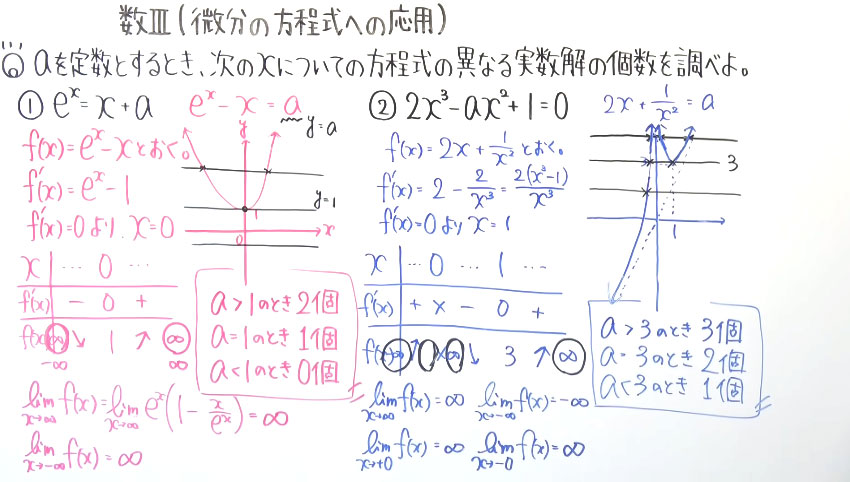 数Ⅲ(微分の方程式への応用)
aを定数とするとき、次のxについての方程式の異なる実数解の個数を調べよ。
① e^x = x + a
e^x - x = a
f(x) = e^x - x とおく。
f'(x) = e^x - 1
f'(x) = 0 より、x = 0
y = a
y
y = 1
1
x
0
x … 0 …
f'(x) - 0 +
f(x) ∞ ↘ 1 ↗ ∞
-∞ ∞
a > 1のとき 2個
a = 1のとき 1個
a < 1のとき 0個
lim x→∞ f(x) = lim x→∞ e^x(1 - x/e^x) = ∞
lim x→-∞ f(x) = ∞
② 2x³ - ax² + 1 = 0
2x + 1/x² = a
f(x) = 2x + 1/x² とおく。
f'(x) = 2 - 2/x³ = 2(x³-1)/x³
f'(x) = 0 より x = 1
3
1
x … 0 … 1 …
f'(x) + × - 0 +
f(x) -∞ ↗ ∞ × ∞ ↘ 3 ↗ ∞
a > 3のとき 3個
a = 3のとき 2個
a < 3のとき 1個
lim x→∞ f(x) = ∞ lim x→-∞ f(x) = -∞
lim x→+0 f(x) = ∞ lim x→-0 f(x) = ∞